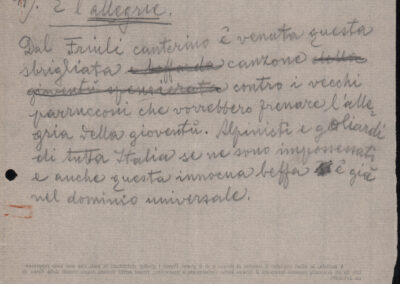 E l'allegrie.
Dal Friuli canterino è venuta questa
sbrigliata e beffarda canzone della
gioventù spensierata contro i vecchi
parrucconi che vorrebbero frenare l'alle
gria della gioventù. Alpinisti e goliardi
di tutta Italia se ne sono impossessati
e anche questa innocua beffa è già
nel dominio universale.